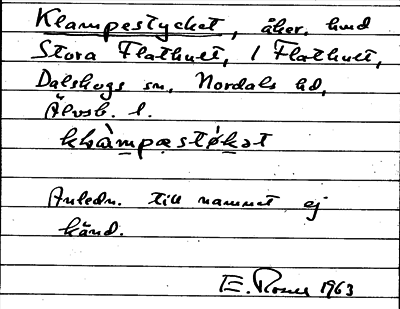 Klampestycket, åker, hmd
Stora Flathult, / Flathult,
Dalskogs sn, Nordals hd,
Älvsb. l.
Anledn. till namnet ej
känd.
E. 1963